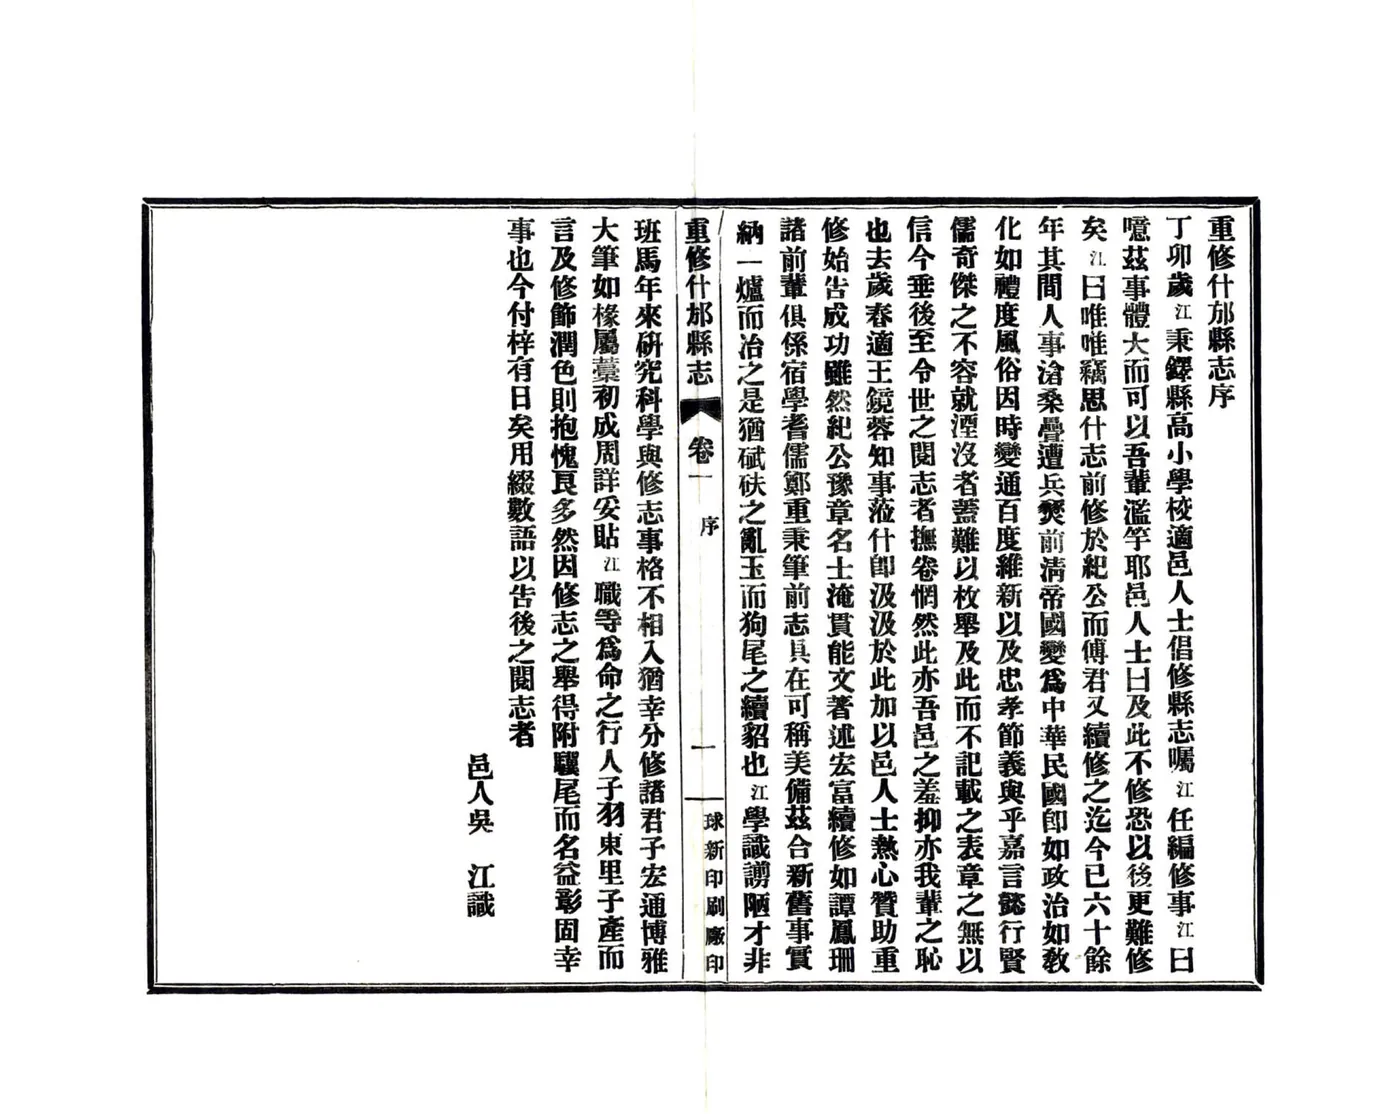 重修什邡縣志序
丁卯歲江秉鐸縣高小學校適邑人士倡修縣志囑江任編修事江曰
噫茲事體大而可以吾輩濫竽耶邑人士曰及此不修恐以後更難修
矣江曰唯唯竊思什志前修於紀公而傅君又續修之迄今已六十餘
年其間人事滄桑疊遭兵燹前清帝國變爲中華民國卽如政治如敎
化如禮度風俗因時變通百度維新以及忠孝節義與乎嘉言懿行賢
儒奇傑之不容就湮沒者蓋難以枚舉及此而不記載之表章之無以
信今垂後至令世之閱志者撫卷惘然此亦吾邑之羞抑亦我輩之恥
也去歲春適王鏡蓉知事蒞什卽汲汲於此加以邑人士熱心贊助重
修始告成功雖然紀公豫章名士淹貫能文著述宏富續修如譚鳳珊
諸前輩俱係宿學耆儒鄭重秉筆前志具在可稱美備茲合新舊事實
納一爐而冶之是猶碔砆之亂玉而狗尾之續貂也江學識譾陋才非
重修什邡縣志 卷一 序 一 球新印刷廠印
班馬年來硏究科學與修志事格不相入猶幸分修諸君子宏通博雅
大筆如椽屬藁初成周詳妥貼江職等爲命之行人子羽東里子產而
言及修飾潤色則抱愧良多然因修志之舉得附驥尾而名益彰固幸
事也今付梓有日矣用綴數語以告後之閱志者
邑人吳 江識